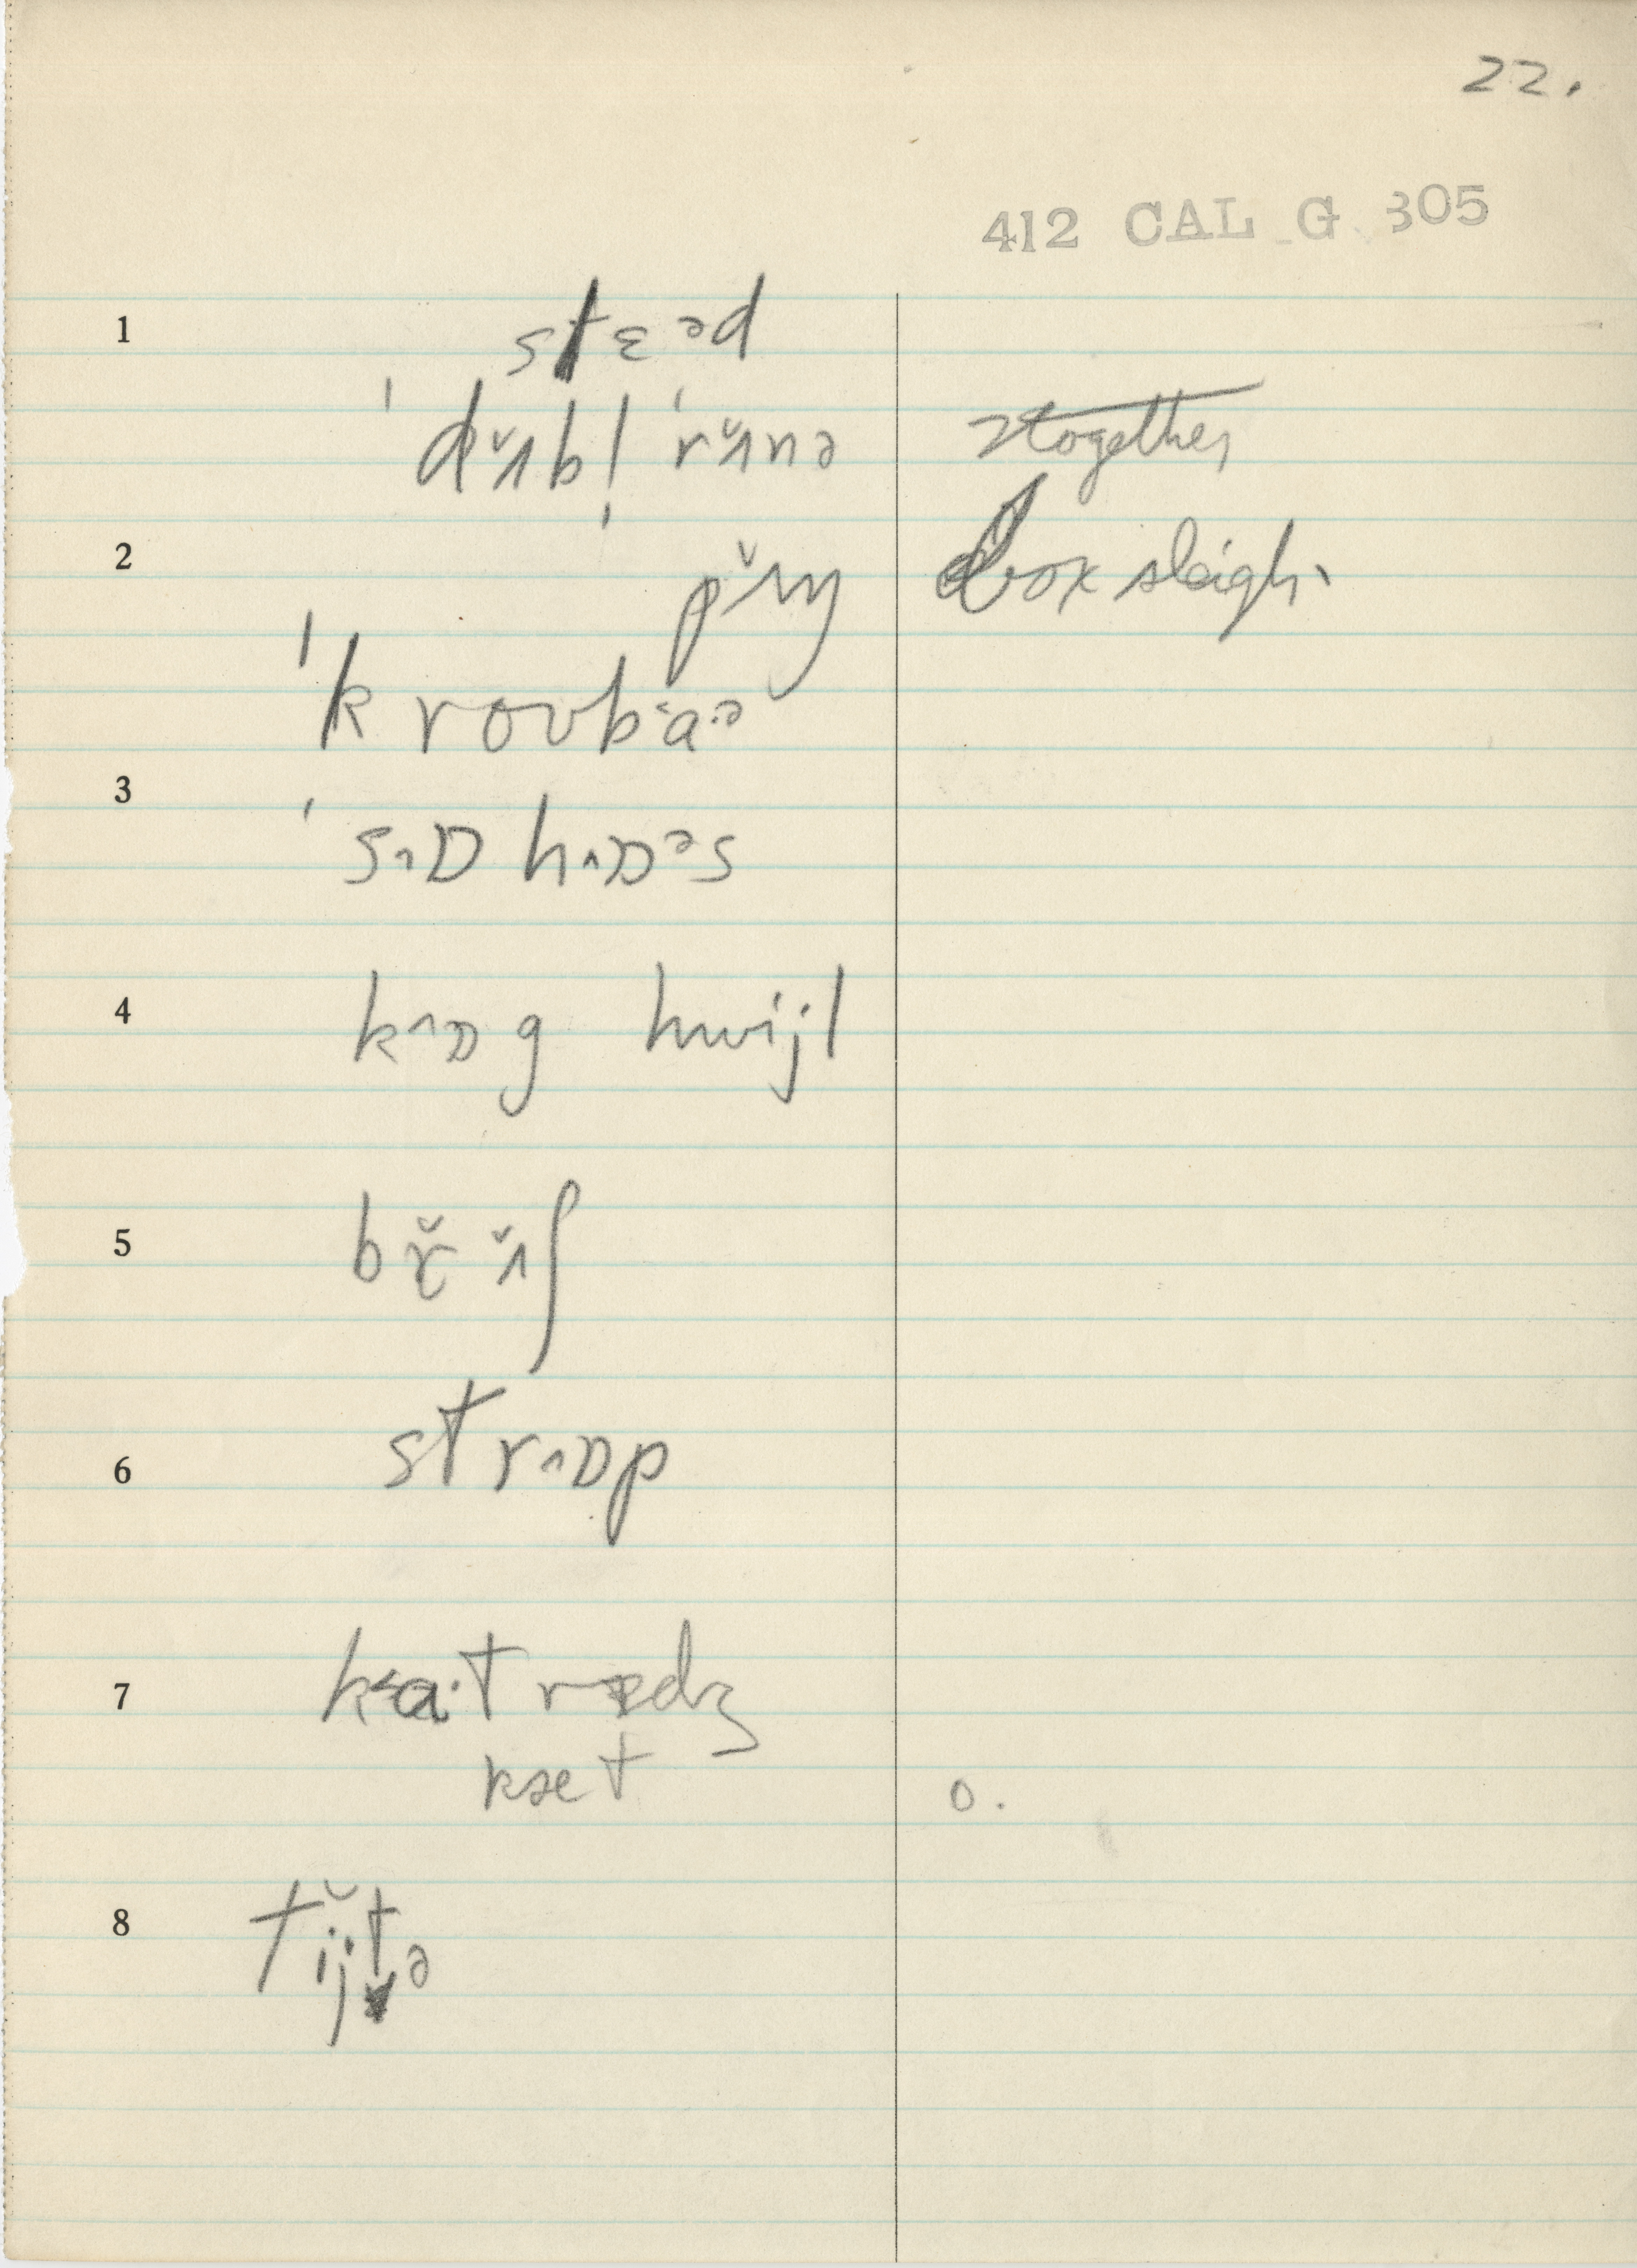 22.
412 CAL G 305
1 stɛəd
ˈdʌ̆bl̩ ˈrʌ̆nə 2 together
2 pʌ̆ŋ box sleigh
ˈkroʊba·ə
3 ˈsɒhɒəs
4 kɒg hwijl
5 brʌ̆ʃ
6 strɒp
7 ka·t rædʒ
kæt o.
8 tĭjtə